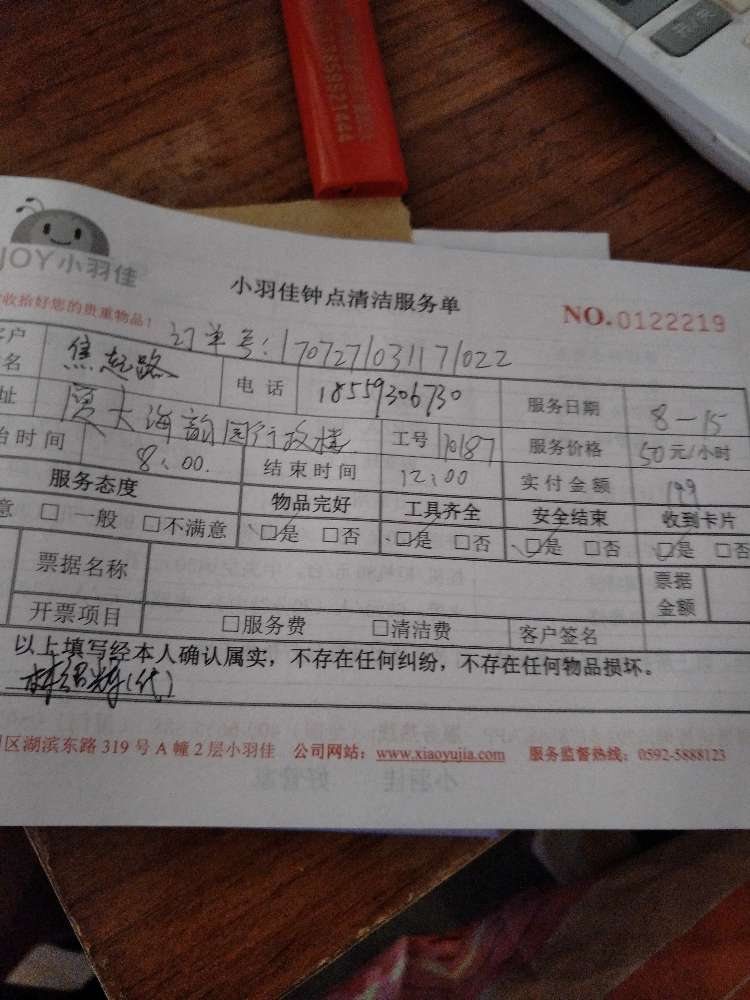 JOY小羽佳
小羽佳钟点清洁服务单
NO.0122219
收拾好您的贵重物品！
订单号:170727103117022
户 电话 18559306730 服务日期 8-15
名
址 厦大海韵园行政楼 工号 10187 服务价格 50元/小时
时间 8:00. 结束时间 12:00 实付金额 199
服务态度 物品完好 工具齐全 安全结束 收到卡片
意 □一般 □不满意 ☑是 □否 ☑是 □否 ☑是 □否 ☑是 □否
票据名称 票据金额
开票项目 □服务费 □清洁费 客户签名
以上填写经本人确认属实，不存在任何纠纷，不存在任何物品损坏。
(代)
区湖滨东路319号A幢2层小羽佳 公司网站：www.xiaoyujia.com 服务监督热线：0592-5888123